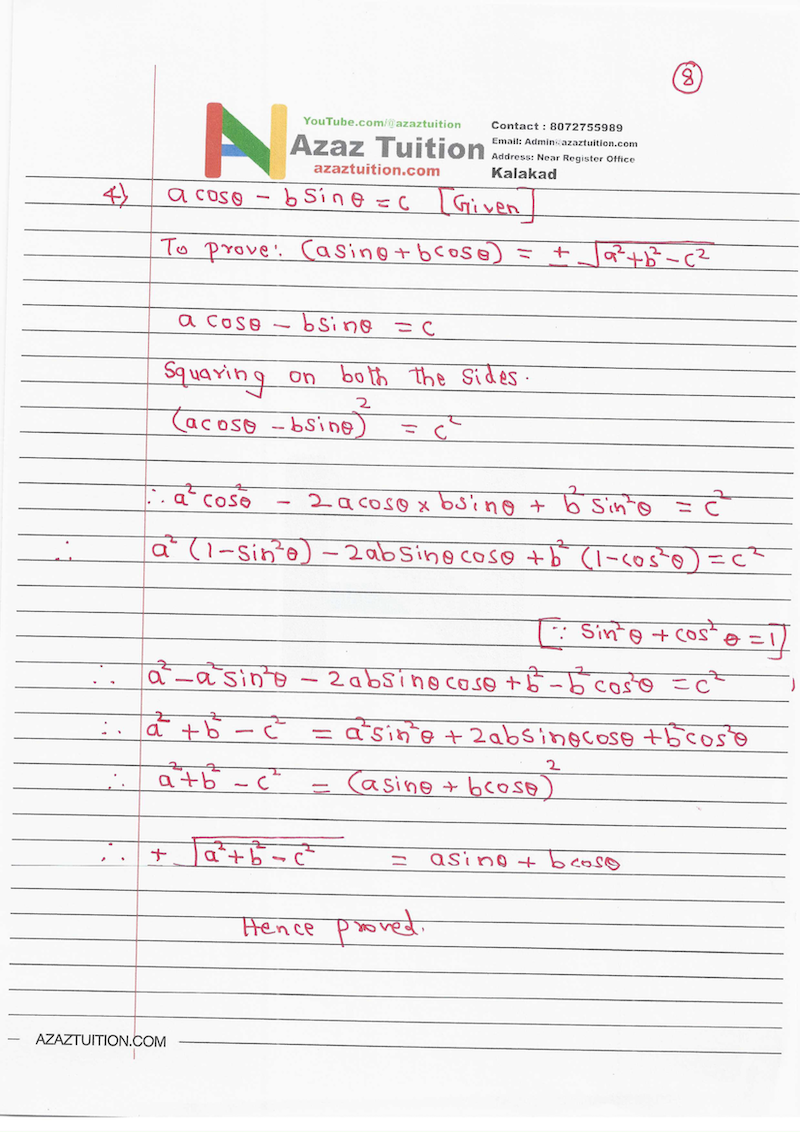 8
YouTube.com/@azaztuition
Azaz Tuition
azaztuition.com
Contact : 8072755989
Email: Admin@azaztuition.com
Address: Near Register Office
Kalakad
4) a cosθ - b sinθ = c [Given]
To prove: (asinθ + bcosθ) = ± √a²+b²-c²
a cosθ - bsinθ = c
Squaring on both the sides.
(acosθ - bsinθ)² = c²
∴ a² cos²θ - 2acosθ × bsinθ + b² sin²θ = c²
∴ a² (1-sin²θ) - 2absinθcosθ + b² (1-cos²θ) = c²
[∵ sin²θ + cos²θ = 1]
∴ a² - a²sin²θ - 2absinθcosθ + b² - b²cos²θ = c²
∴ a² + b² - c² = a²sin²θ + 2absinθcosθ + b²cos²θ
∴ a² + b² - c² = (asinθ + bcosθ)²
∴ + √a²+b²-c² = asinθ + bcosθ
Hence proved.
AZAZTUITION.COM